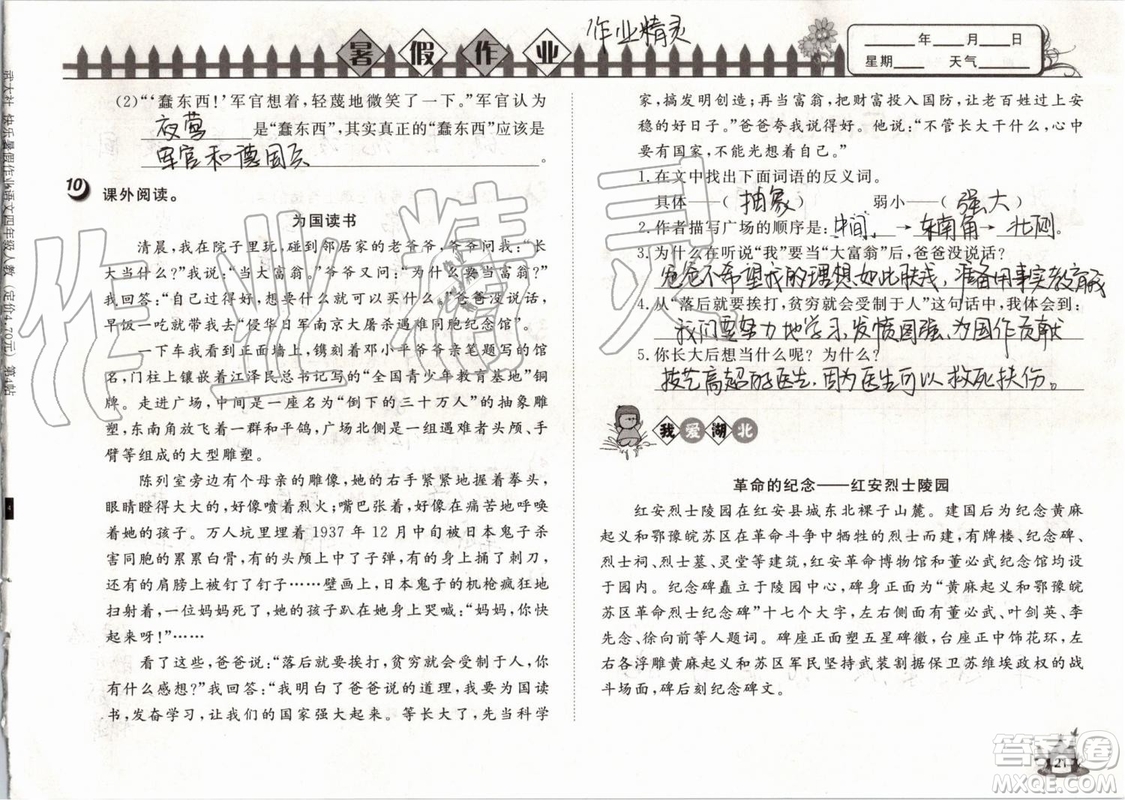 暑假作业
作业精灵
____年____月____日
星期____ 天气____
(2)“‘蠢东西!’军官想着,轻蔑地微笑了一下。”军官认为
夜莺是“蠢东西”,其实真正的“蠢东西”应该是
军官和德国兵。
10 课外阅读。
为国读书
清晨,我在院子里玩,碰到邻居家的老爷爷,爷爷问:“长
大当什么?”我说:“当大富翁。”爷爷又问:“为什么?”
我回答:“过好日子,想要什么就买什么。”爸爸没说话,
早饭一吃就带我去“侵华日军南京大屠杀遇难同胞纪念馆”。
一下车我看到外面墙上,镌刻着邓小平爷爷亲笔题写的馆
名,门柱上镶嵌着江泽民总书记写的“全国青少年教育基地”铜
牌。走进广场,中间是一座名为“倒下的三十万人”的抽象雕
塑,东南角放飞着一群和平鸽,广场北侧是一支由无数头颅、手
臂等组成的大型雕塑。
陈列室旁有个母亲的雕像,她的右手紧紧地握着拳头,
眼睛瞪得大大的,好像喷着火;嘴巴张着,好像在呼唤着
她的孩子。万人坑里埋着1937年12月中旬被日本鬼子杀
害同胞的累累白骨,有的头颅上有弹孔,有的身上捅了刺刀,
还有的肩膀上被钉了钉子……壁画上,日本鬼子的机枪疯狂地
扫射着,一位妈妈死了,她的孩子趴在她身上哭喊:“妈妈,你快
起来呀!”……
看了这些,爸爸说:“落后就要挨打,贫穷就会受制于人,你
有什么感想?”我回答:“我明白了爸爸说的道理,我要为国读
书,发奋学习,让我们的国家强大起来。等长大了,先当科学
家,搞发明创造;再当富翁,把财富投入国防,让老百姓过上安
稳的好日子。”爸爸夸我说得好。他说:“不管长大干什么,心中
要有国家,不能光想着自己。”
1.在文中找出下面词语的反义词。
具体——(抽象) 弱小——(强大)
2.作者描写广场的顺序是:中间→东南角→北侧。
3.为什么在听说“我”要当“大富翁”后,爸爸没说话?
爸爸不希望我的理想如此肤浅,准备用事实教育我
4.从“落后就要挨打,贫穷就会受制于人”这句话中,我体会到:
我们要努力地学习,发愤图强,为国作贡献
5.你长大后想当什么呢?为什么?
技艺高超的医生,因为医生可以救死扶伤。
我爱湖北
革命的纪念——红安烈士陵园
红安烈士陵园在红安县城东北裸子山麓。建国后为纪念黄麻
起义和鄂豫皖苏区在革命斗争中牺牲的烈士而建,有牌楼、纪念
碑、烈士祠、烈士墓、灵堂等建筑,红安革命博物馆和董必武纪念馆均设
于园内。纪念碑矗立于陵园中心,碑身正面为“黄麻起义和鄂豫皖
苏区革命烈士纪念碑”十七个大字,左右侧面有董必武、叶剑英、李
先念、徐向前等人题词。碑座正面塑五星碑徽,台座正中饰花环,左
右各浮雕黄麻起义和苏区军民坚持武装割据保卫苏维埃政权的战
斗场面,碑后刻纪念碑文。
武大社 快乐暑假作业语文四年级人教(定价4.70元) 第4帖
作业精灵
答案圈
MXQE.COM
21